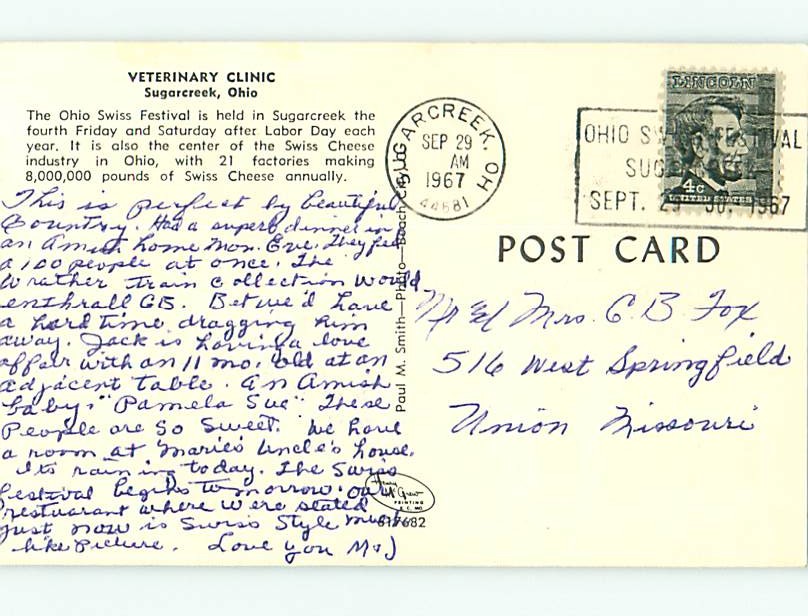 VETERINARY CLINIC
Sugarcreek, Ohio
The Ohio Swiss Festival is held in Sugarcreek the
fourth Friday and Saturday after Labor Day each
year. It is also the center of the Swiss Cheese
industry in Ohio, with 21 factories making
8,000,000 pounds of Swiss Cheese annually.
This is perfect by beautiful
Country. Had a superb dinner in
an Amish home Mon. Eve. They fed
a 100 people at once. The
Wrather Train Collection would
enthrall GB. Bet we'd have
a hard time dragging him
away. Jack is having a love
affair with an 11 mo. old at an
adjacent table. An Amish
baby. "Pamela Sue" These
People are So Sweet. We have
a room at Marie's Uncle's house.
Its raining today. The Swiss
Festival begins tomorrow. our
restuarant where were seated
just now is Swiss Style much
like Picture. Love you M&J
Paul M. Smith—Photo—Beach City, O.
Henry McGrew
PRINTING
K. C. MO.
817682
SUGARCREEK, OH
SEP 29
AM
1967
44681
OHIO SWISS FESTIVAL
SUGARCREEK
SEPT. 29 30, 1967
LINCOLN
4c
UNITED STATES
POST CARD
Mr & Mrs. G B Fox
516 West Springfield
Union Missouri